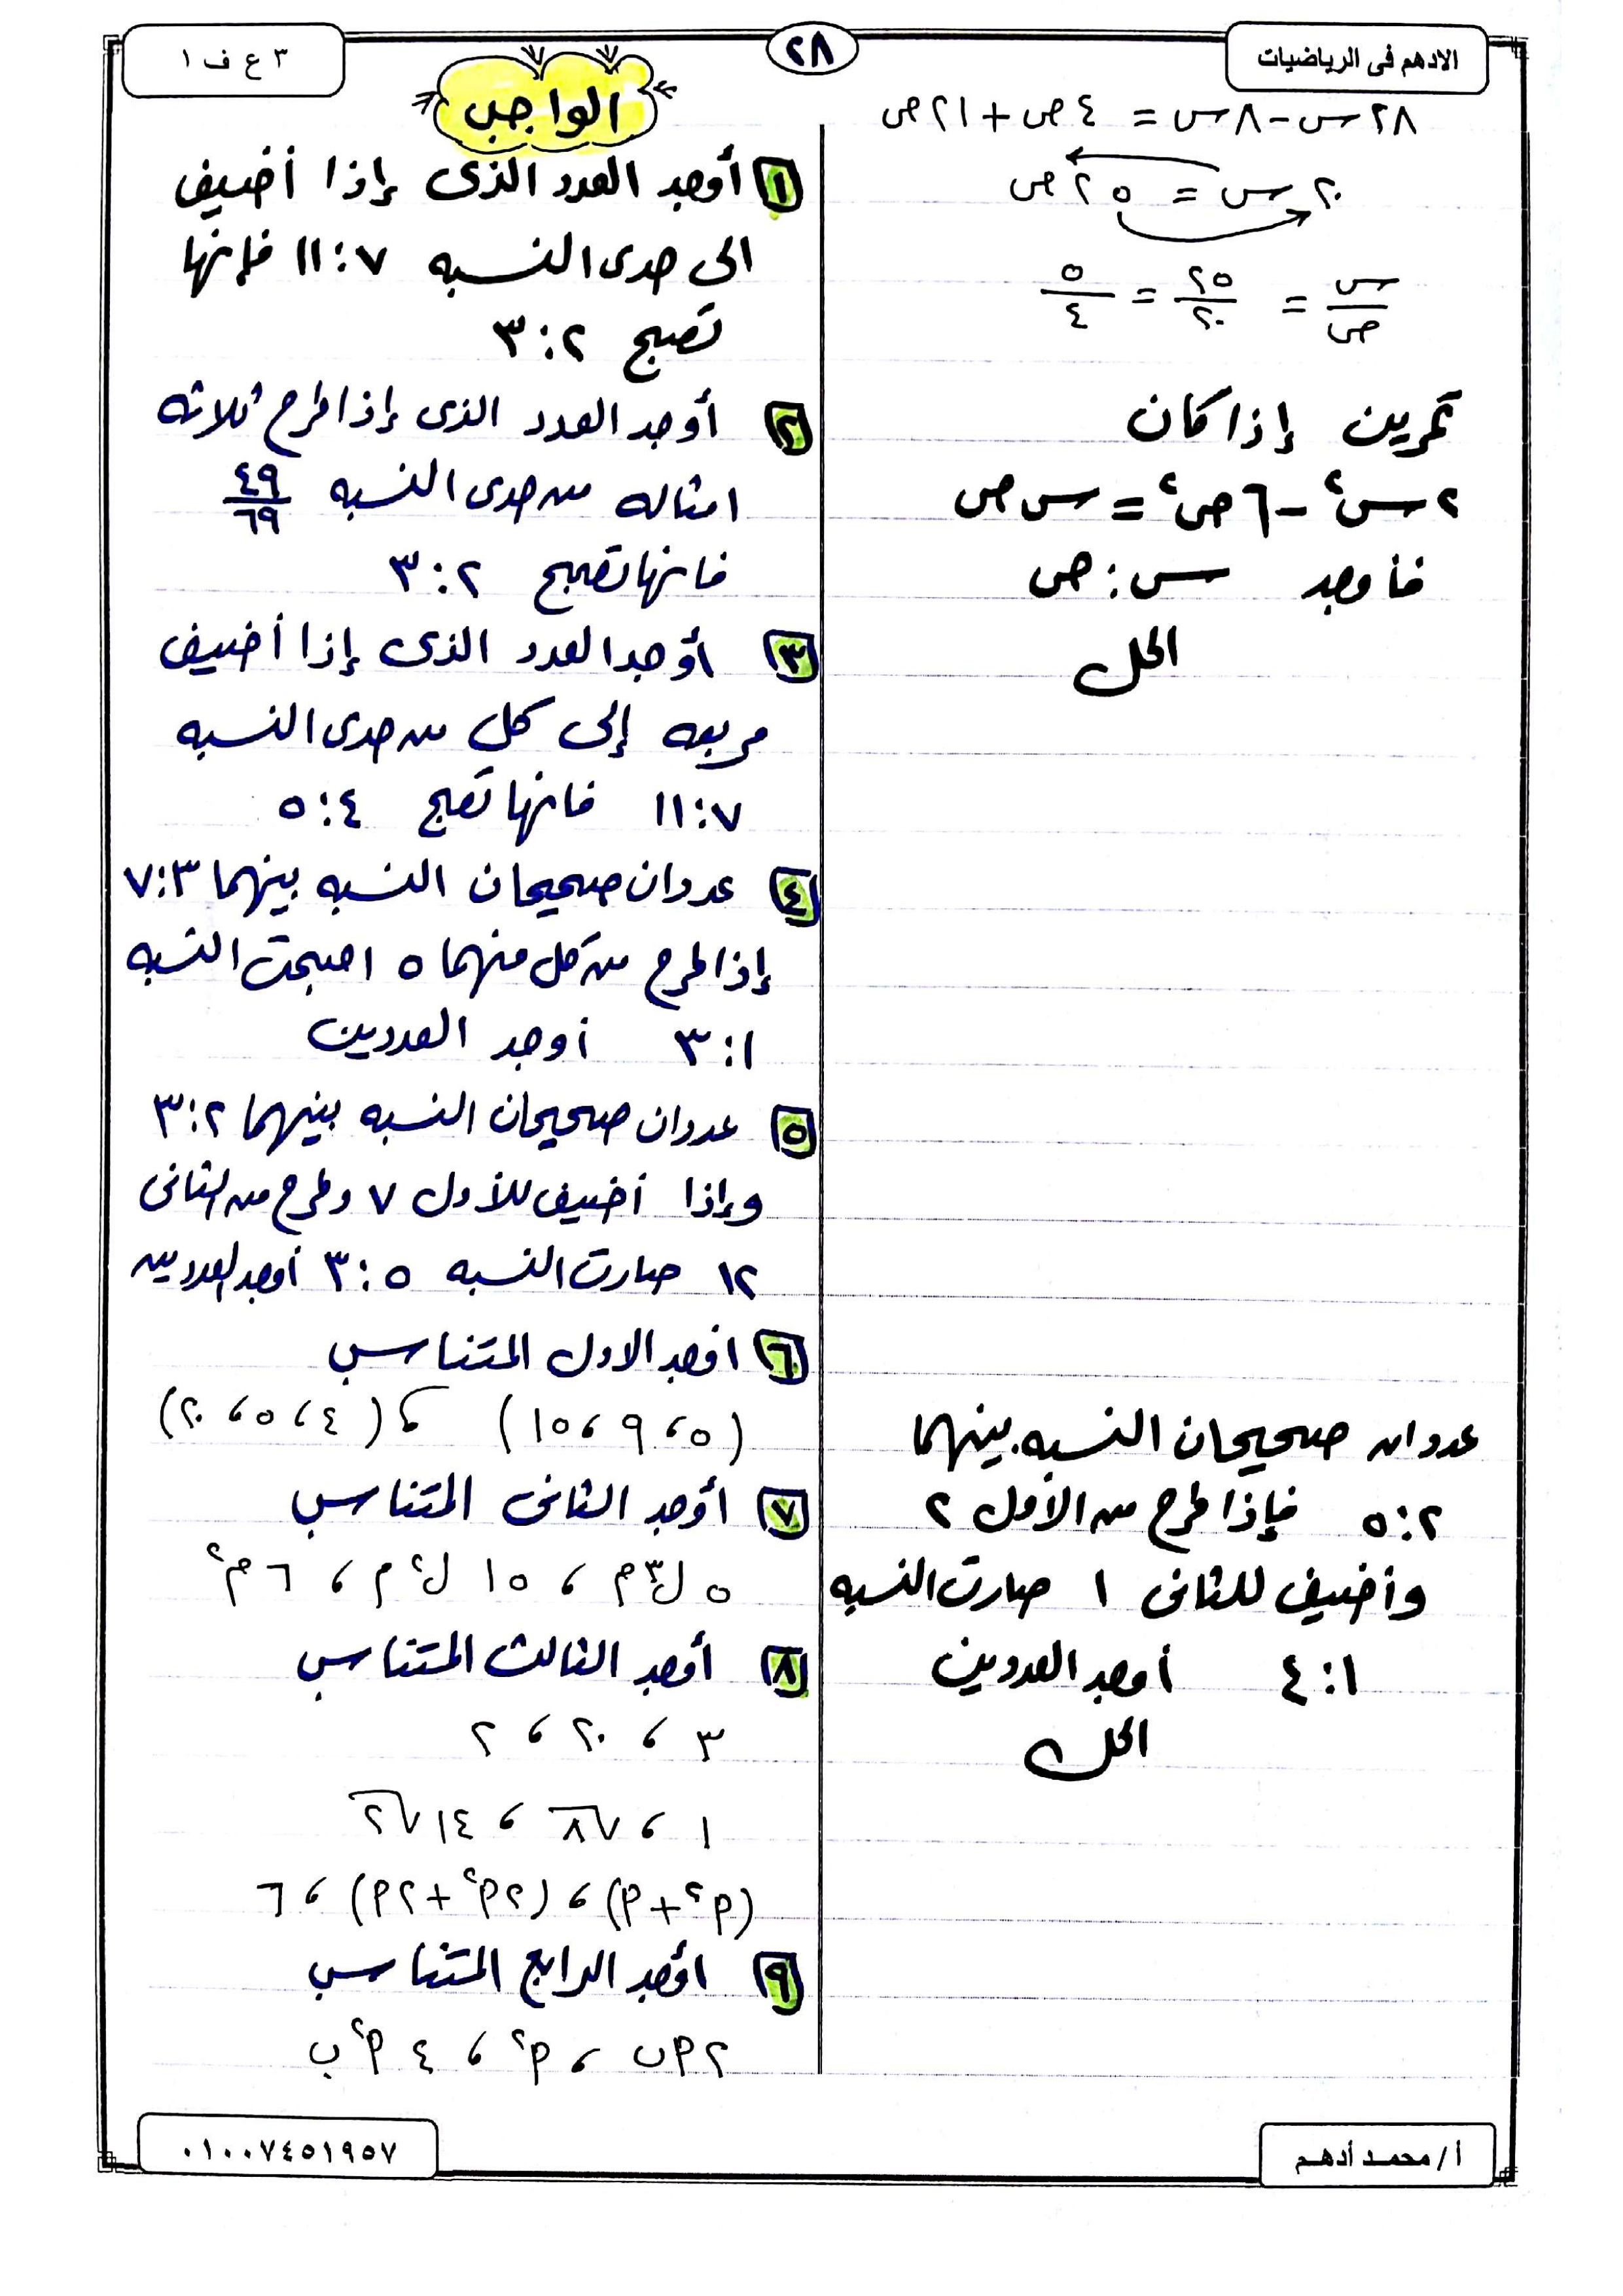 الادهم فى الرياضيات
٢٨
٣ ع ف ١
٢٨ س - ٨ س = ٤ ص + ٢١ ص
٢٠ س = ٢٥ ص
س/ص = ٢٥/٢٠ = ٥/٤
تمرين إذا كان
٢ س٢ - ٦ ص٢ = س ص
فأوجد س : ص
الحل
عددان صحيحان النسبه بينهما
٢ : ٥ فإذا طرح من الأول ٢
وأضيف للثانى ١ صارت النسبه
١ : ٤ أوجد العددين
الحل
الواجب
١ أوجد العدد الذى إذا أضيف
الى حدى النسبه ٧ : ١١ فإنها
تصبح ٢ : ٣
٢ أوجد العدد الذى إذا طرح ثلاثه
امثاله من حدى النسبه ٤٩/٦٩
فانها تصبح ٢ : ٣
٣ أوجد العدد الذى إذا أضيف
مربعه إلى كل من حدى النسبه
٧ : ١١ فانها تصبح ٤ : ٥
٤ عددان صحيحان النسبه بينهما ٣ : ٧
إذا طرح من كل منهما ٥ اصبحت النسبه
١ : ٣ أوجد العددين
٥ عددان صحيحان النسبه بينهما ٢ : ٣
وإذا أضيف للأول ٧ وطرح من الثانى
١٢ صارت النسبه ٥ : ٣ أوجد العددين
٦ اوجد الاول المتناسب
(٥ ، ٩ ، ١٥) ، (٤ ، ٥ ، ٢٠)
٧ أوجد الثانى المتناسب
٥ ل٣ م ، ١٥ ل٢ م ، ٦ م٢
٨ أوجد الثالث المتناسب
٣ ، ٢٠ ، ٢
١ ، √٨ ، ١٤ √٢
(م٢ + م) ، (٢م٢ + ٢م) ، ٦
٩ اوجد الرابع المتناسب
٢ م ب ، م٢ ، ٤ م٢ ب
أ / محمد أدهم
٠١٠٠٧٤٥١٩٥٧